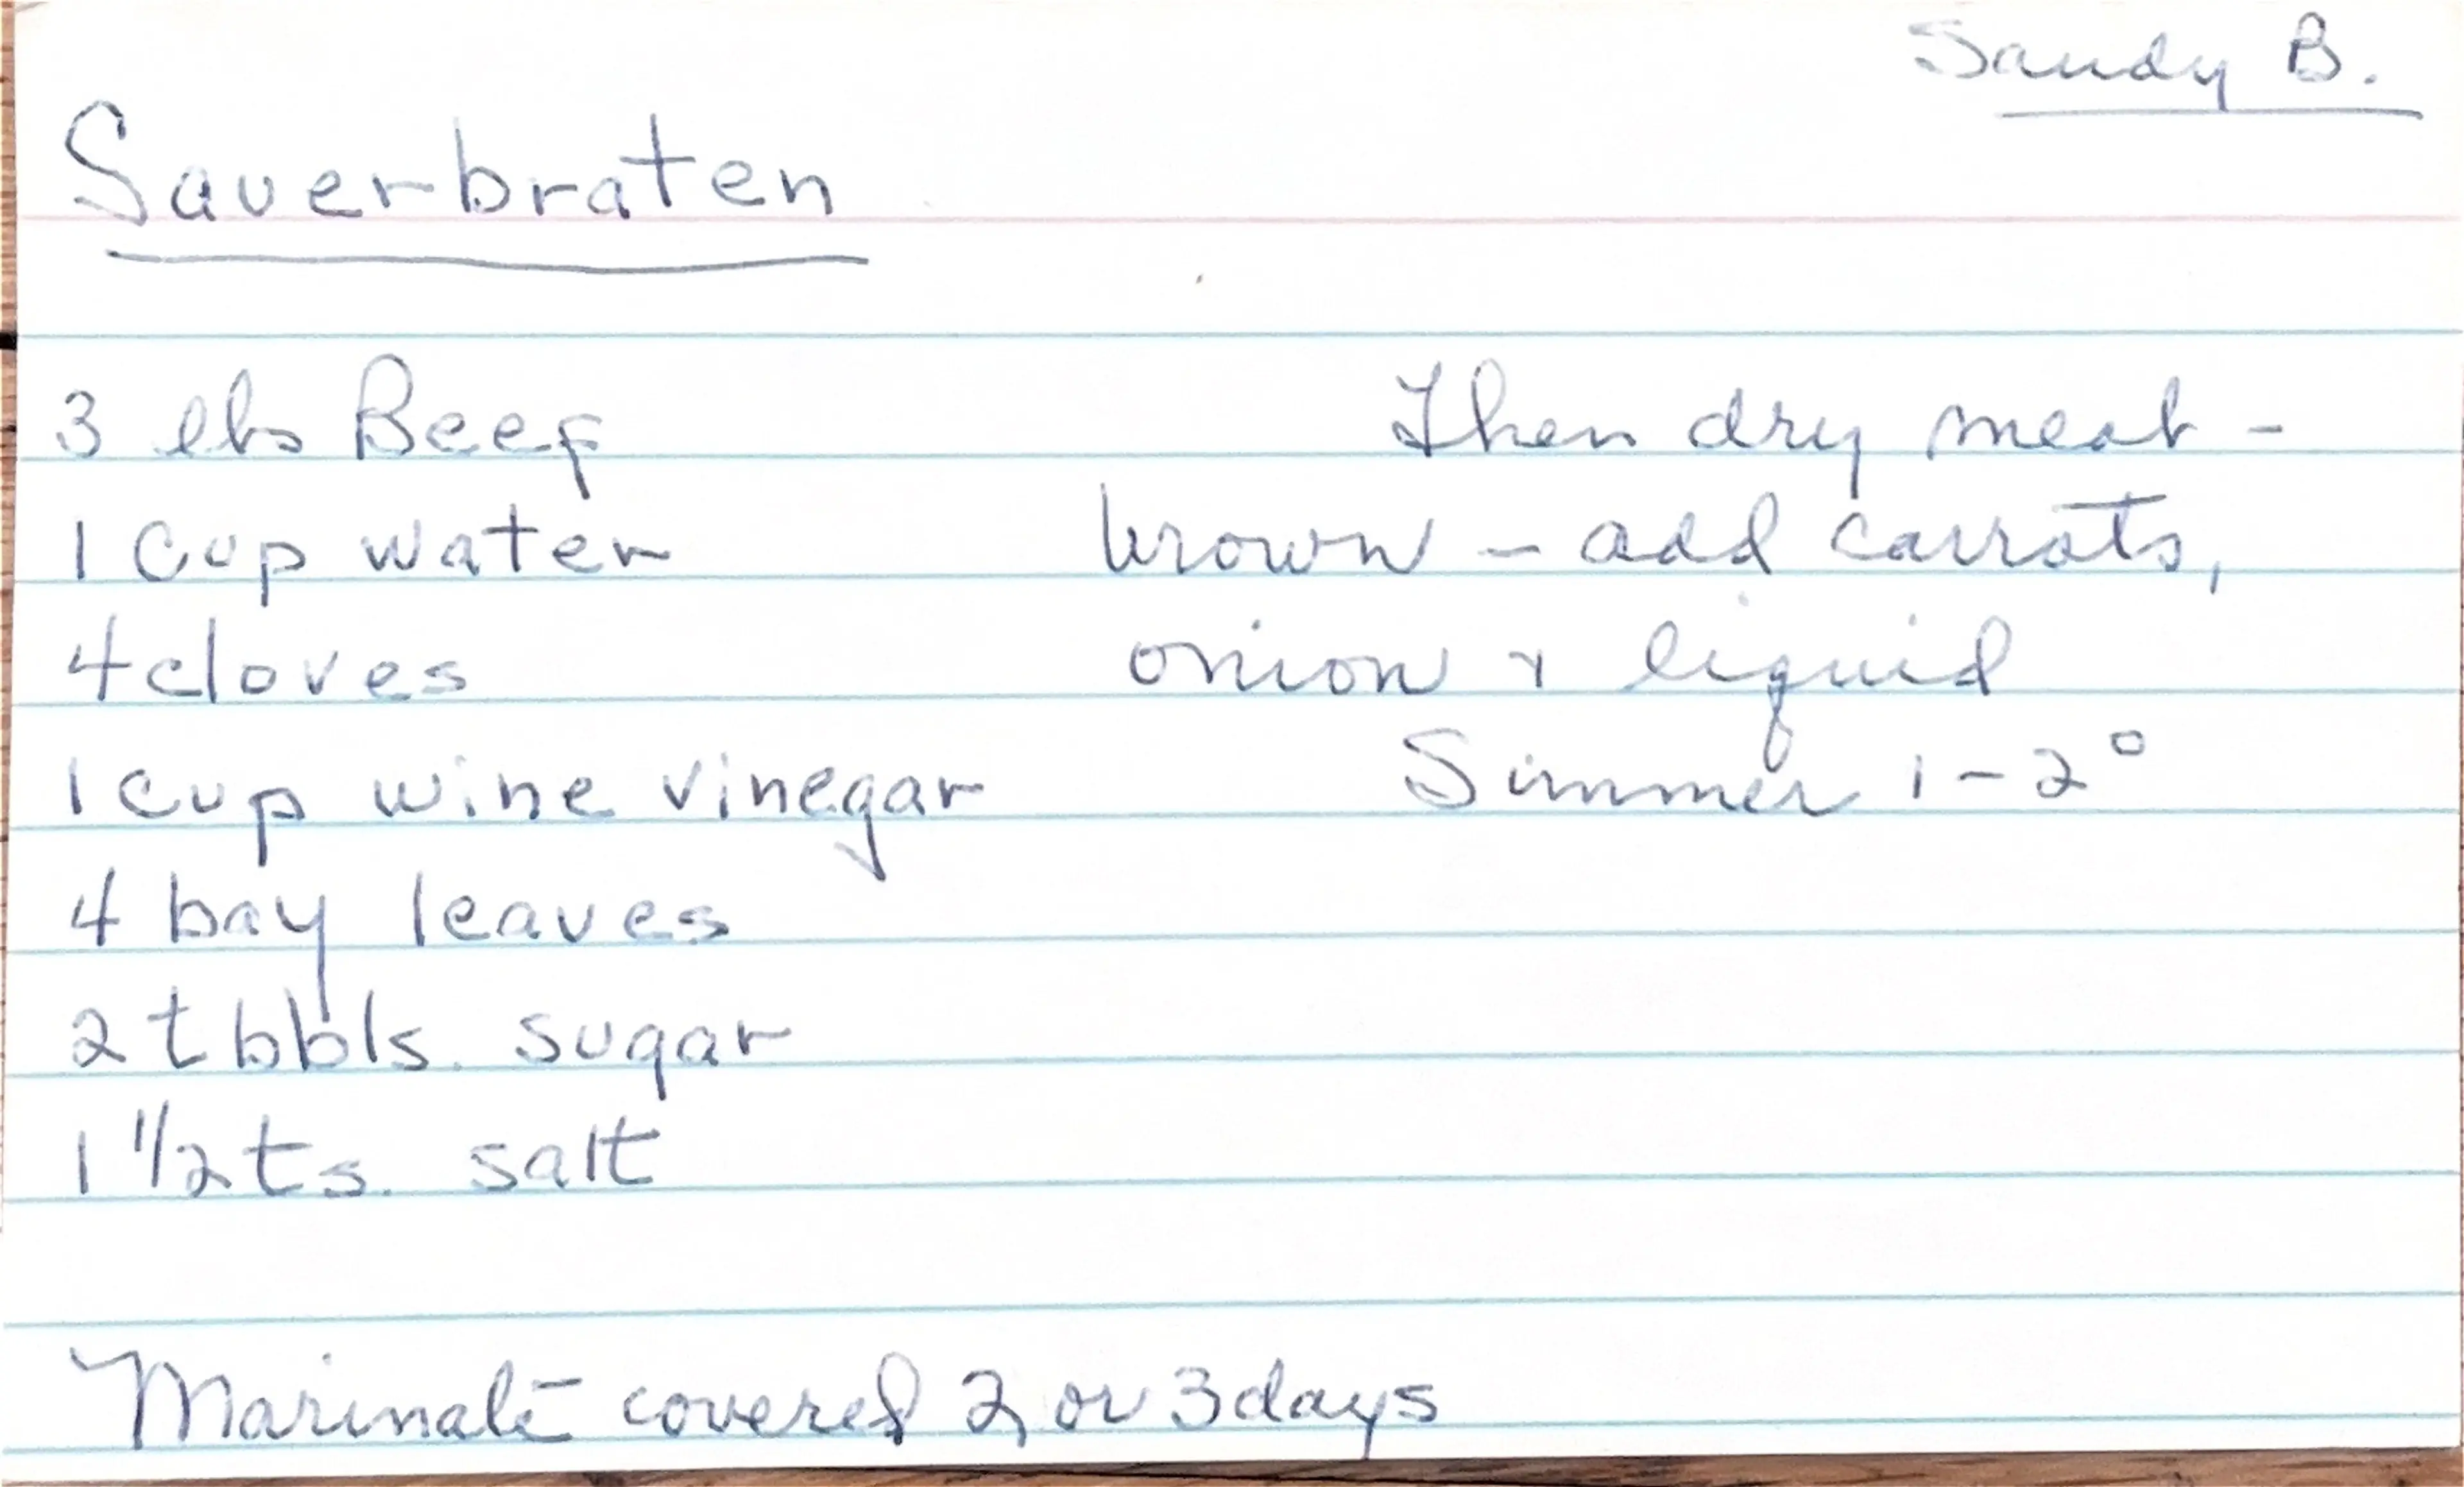 Sandy B.
Sauerbraten
3 lbs Beef
1 cup water
4 cloves
1 cup wine vinegar
4 bay leaves
2 tbbls. sugar
1 1/2 ts. salt
Marinate covered 2 or 3 days
Then dry meat -
brown - add carrots,
onion & liquid
Simmer 1-2°